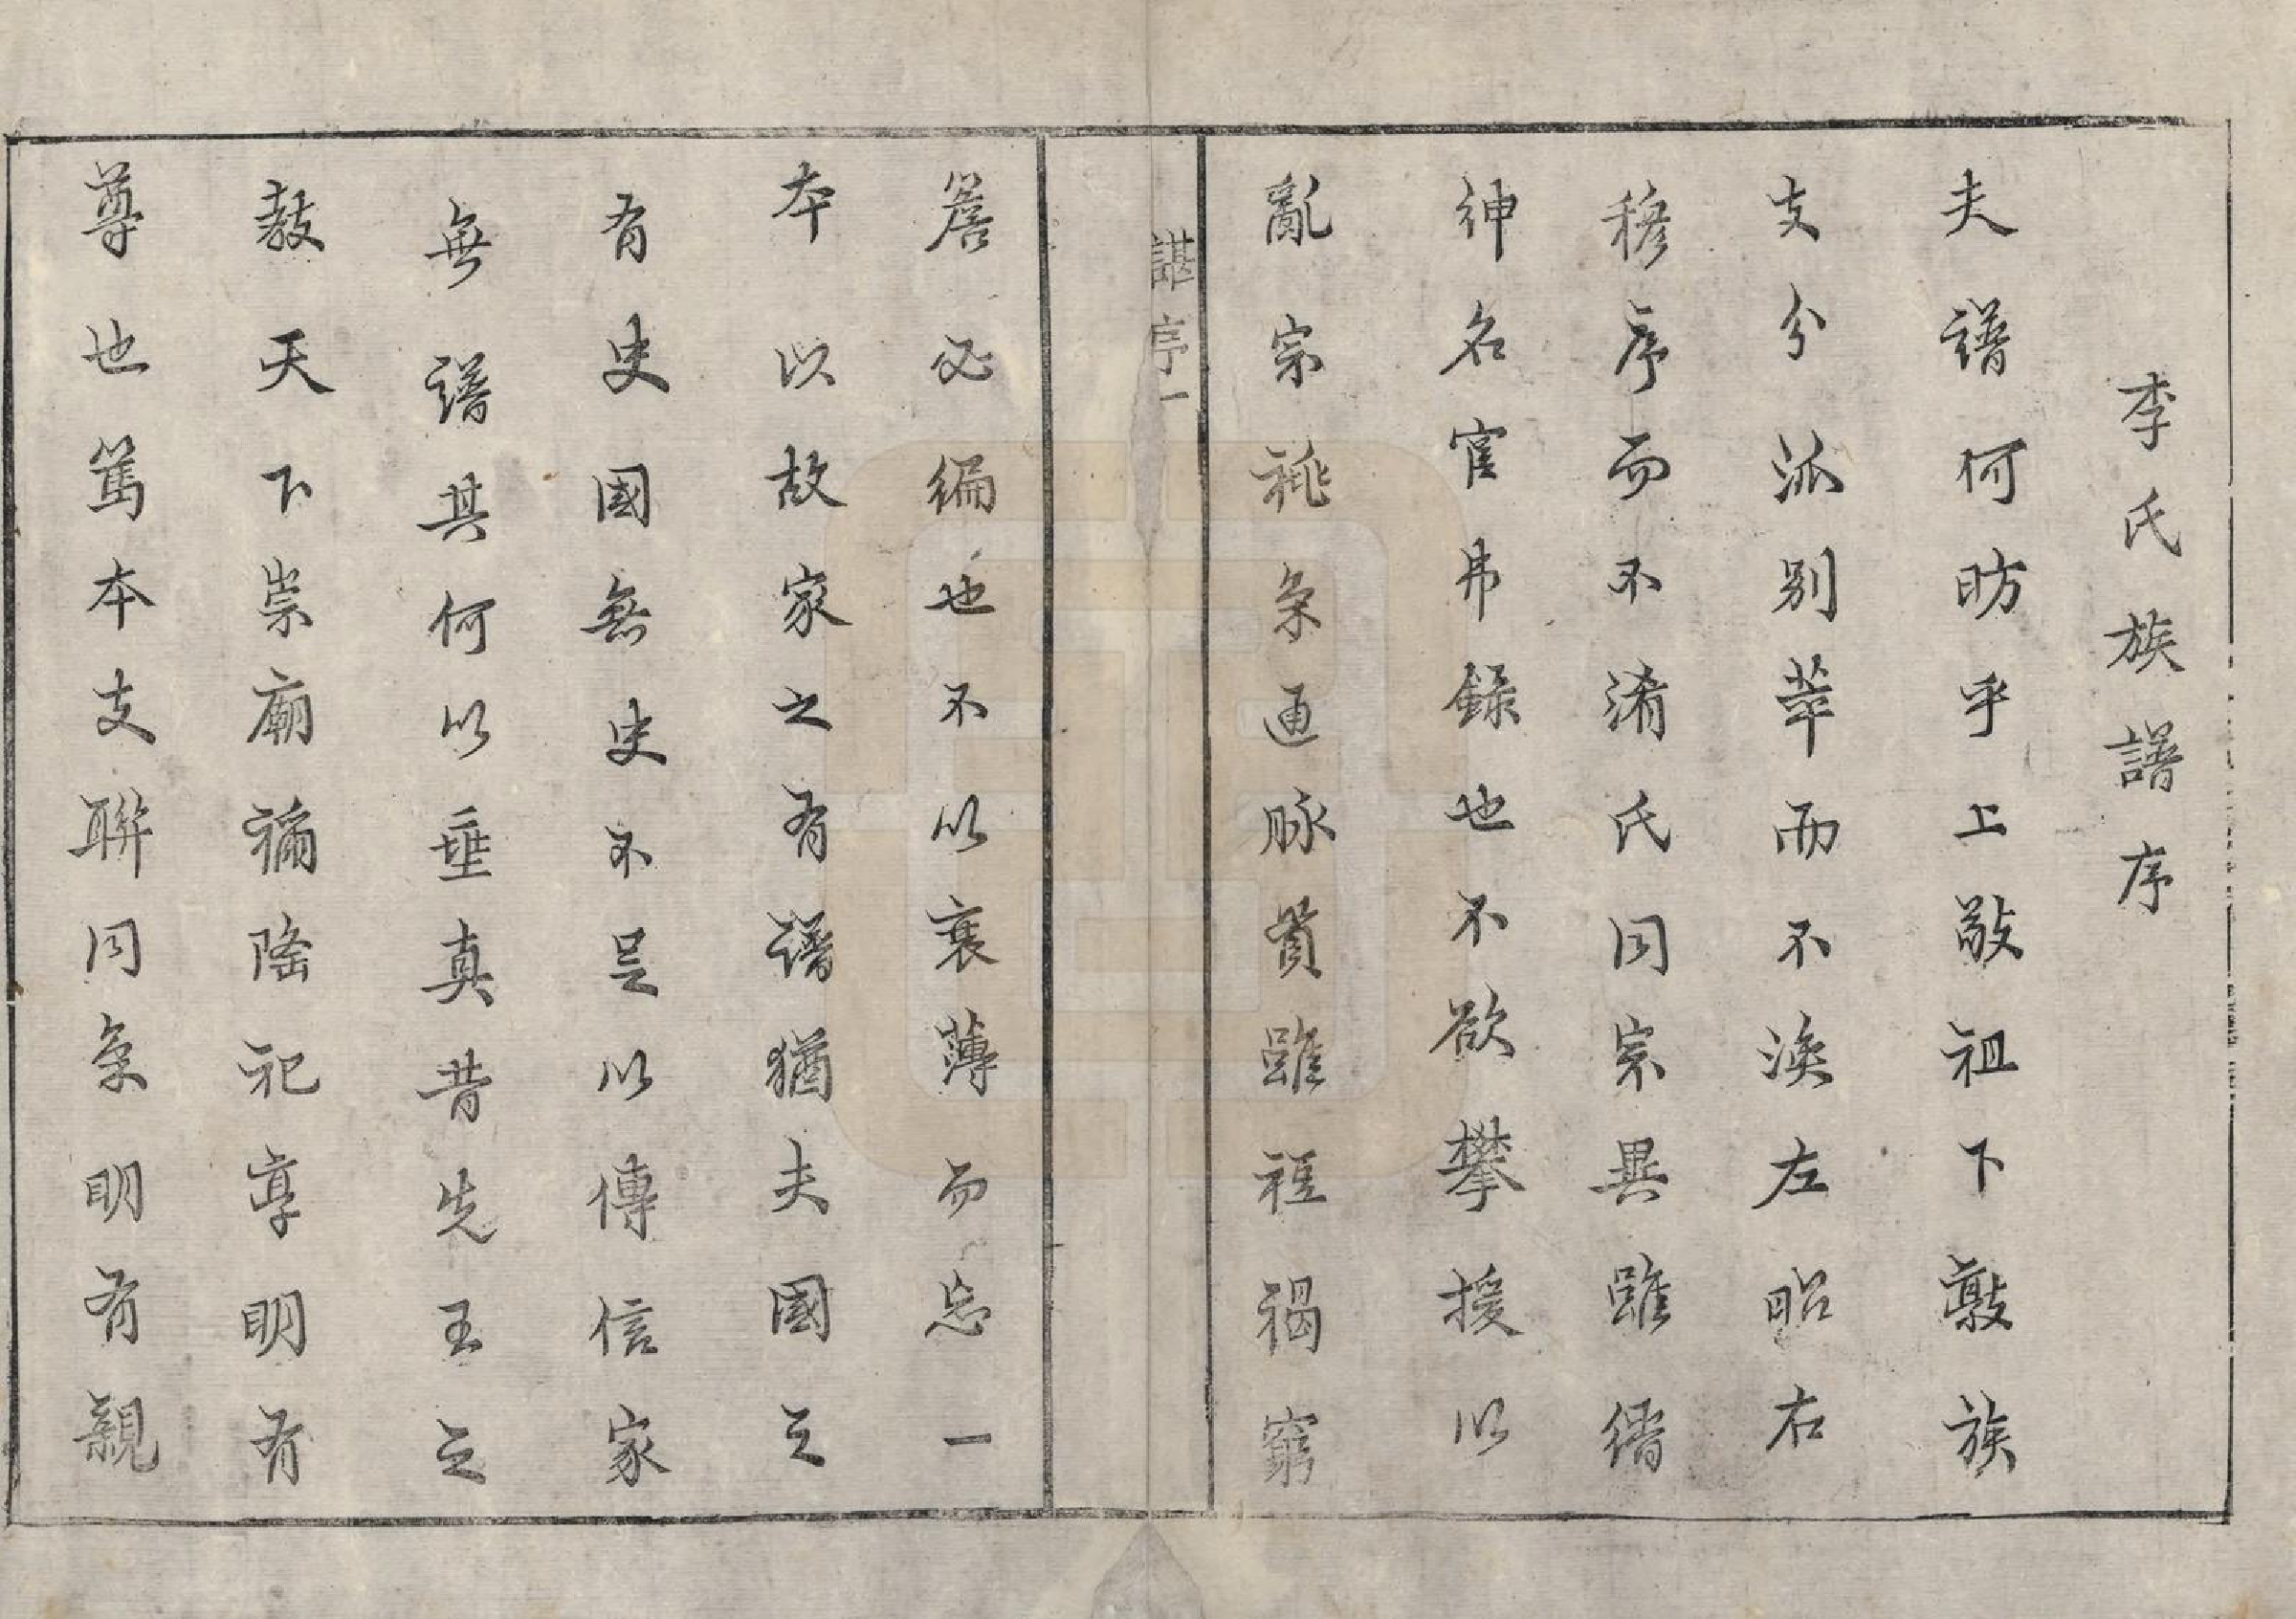 李氏族譜序
夫譜何昉乎上敬祖下敦族
支分派別萃而不渙左昭右
穆序而不淆氏同宗異雖縉
紳名官弗録也不欲攀援以
亂宗祧氣通脉貫雖裋褐窮
譜序一
簷必編也不以衰薄而忘一
本以故家之有譜猶夫國之
有史國無史不足以傳信家
無譜其何以垂真昔先王之
教天下崇廟禰隆祀享明有
尊也篤本支聯同氣明有親